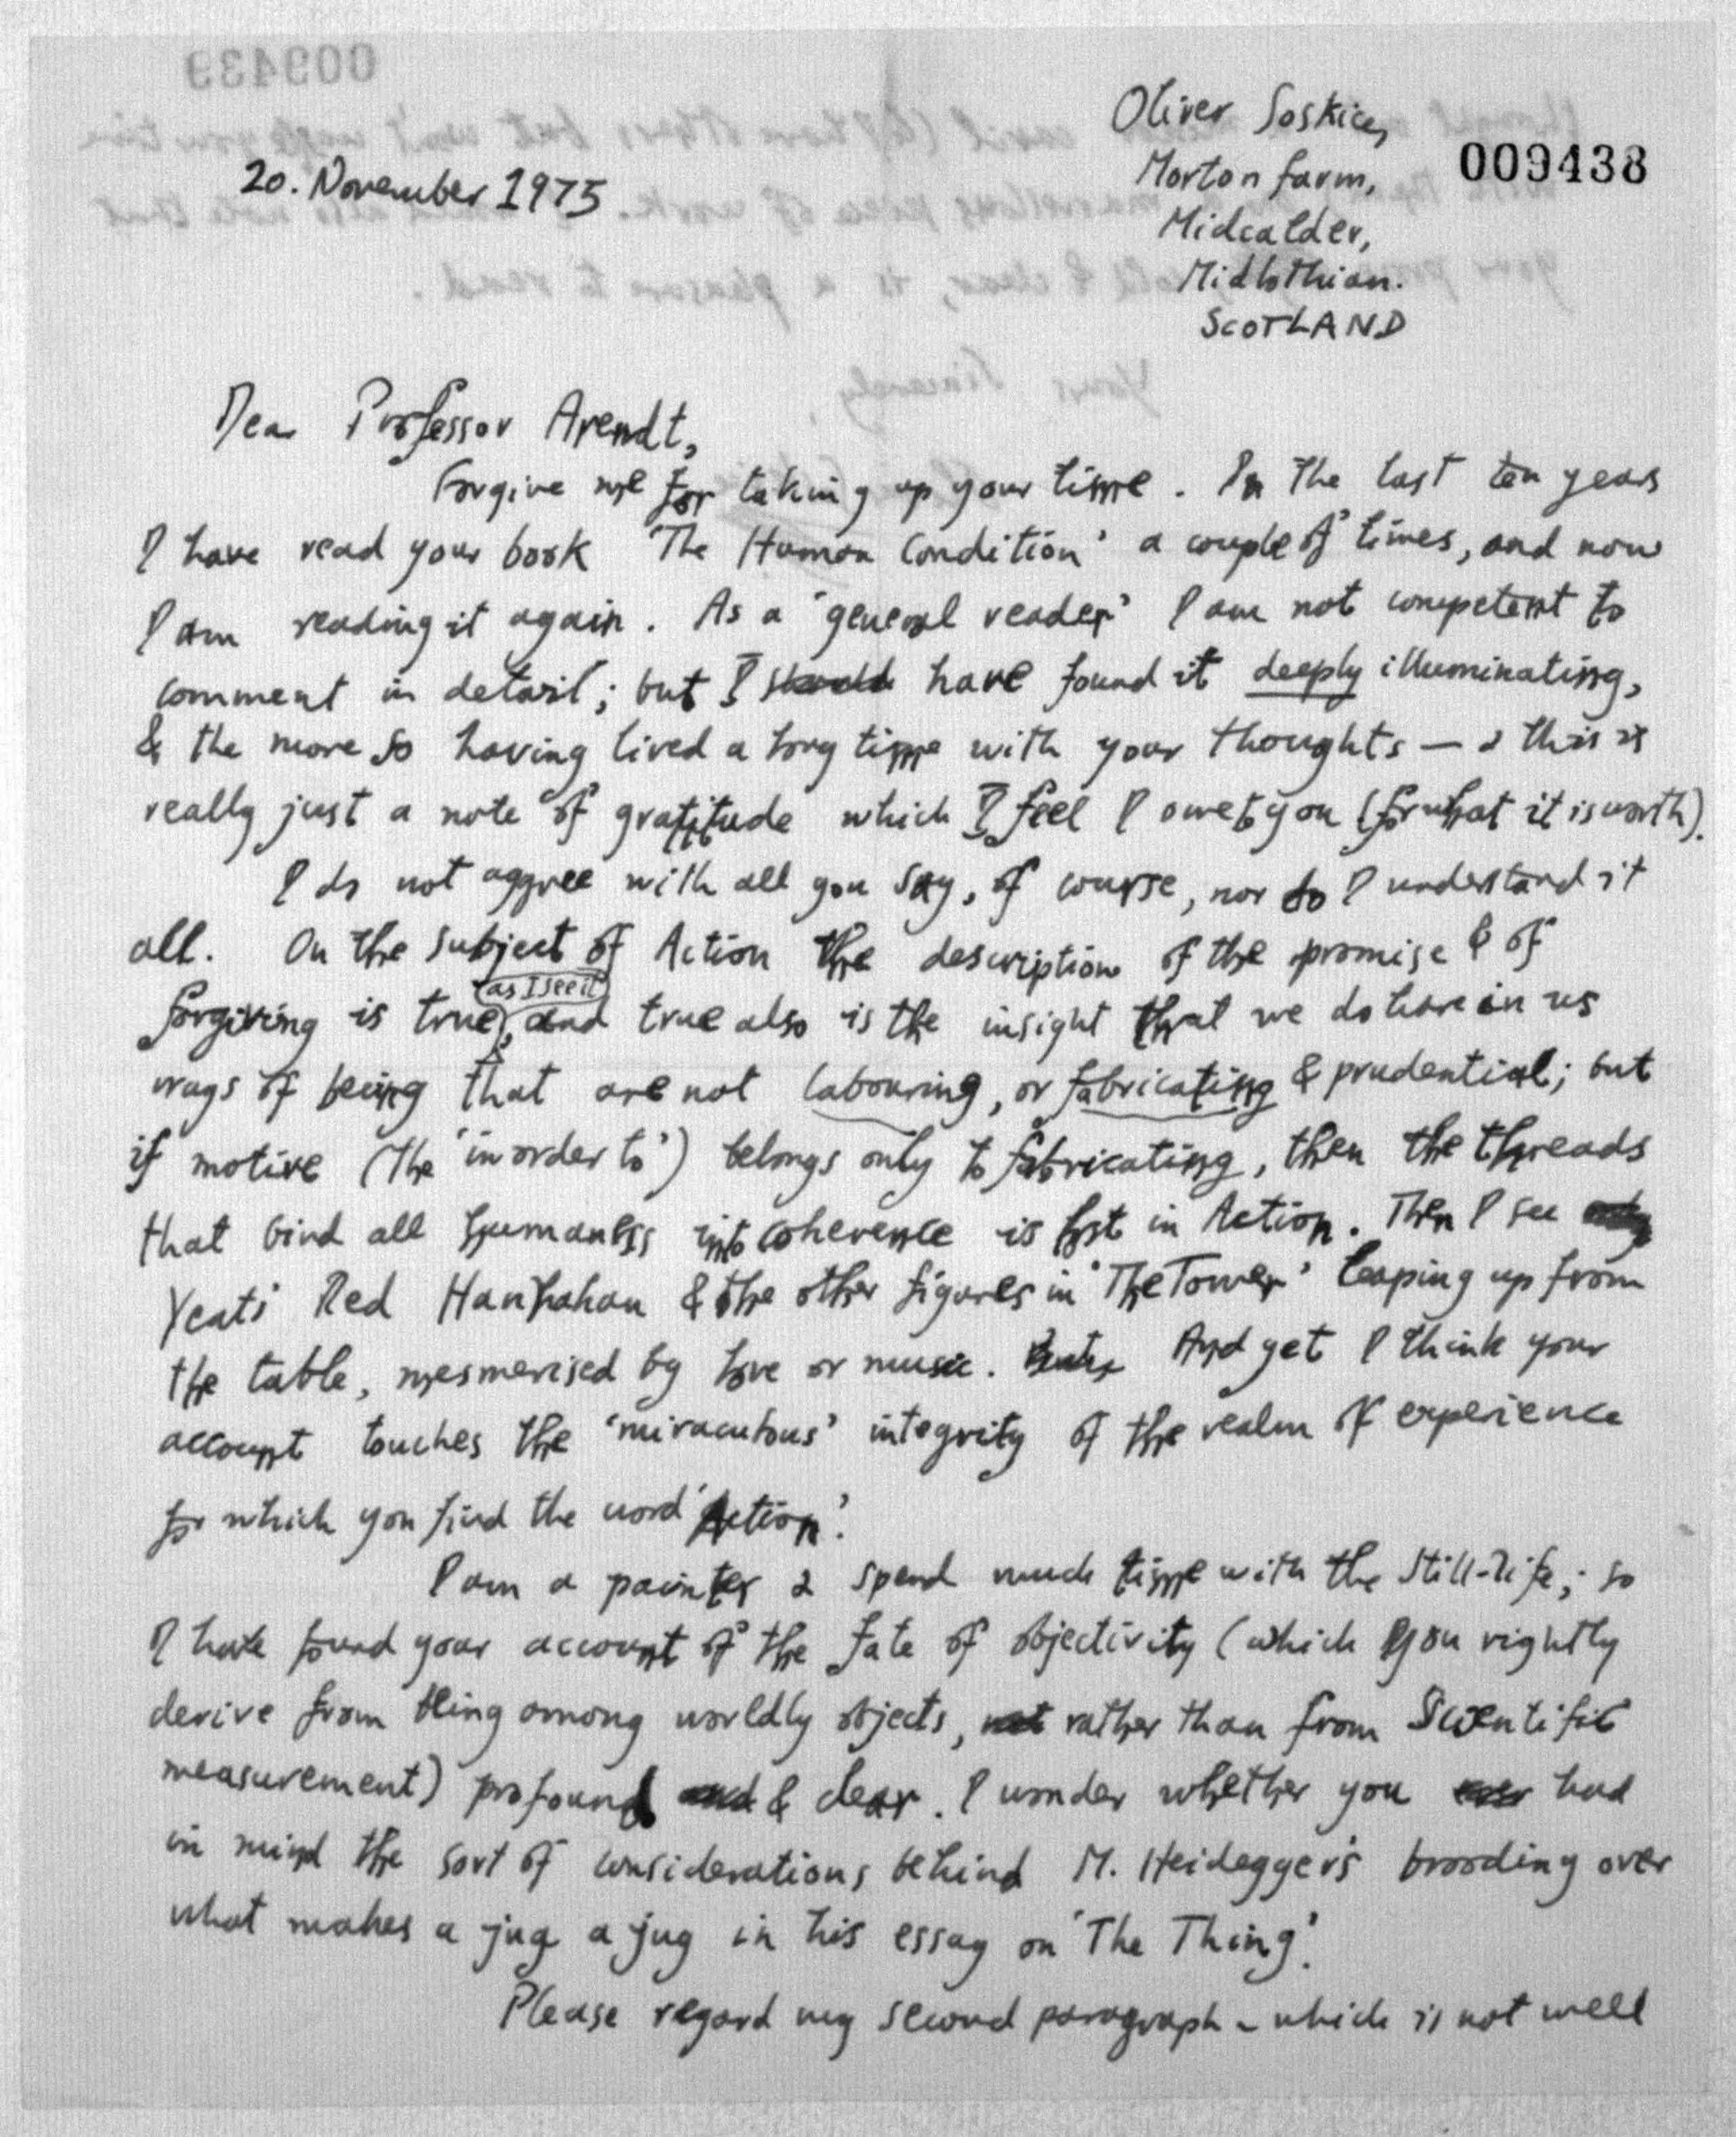 Oliver Soskice,
009438
20. November 1975
Morton farm,
Midcalder,
Midlothian.
SCOTLAND
Dear Professor Arendt,
Forgive me for taking up your time. In the last ten years
I have read your book 'The Human Condition' a couple of times, and now
I am reading it again. As a 'general reader' I am not competent to
comment in detail; but I should have found it deeply illuminating,
& the more so having lived a long time with your thoughts — & this is
really just a note of gratitude which I feel I owe to you (for what it is worth).
I do not aggree with all you say, of course, nor do I understand it
all. On the subject of Action the description of the promise & of
forgiving is true, (as I see it) and true also is the insight that we do have in us
ways of being that are not labouring, or fabricating & prudential; but
if motive (the 'in order to') belongs only to fabricating, then the threads
that bind all humaness into coherence is lost in Action. Then I see
Yeats' Red Hanrahan & the other figures in 'The Tower' leaping up from
the table, mesmerised by love or music. And yet I think your
account touches the 'miraculous' integrity of the realm of experience
for which you find the word 'Action'.
I am a painter & spend much time with the still-life; so
I have found your account of the fate of objectivity (which you rightly
derive from being among worldly objects, not rather than from Scientific
measurement) profound and & clear. I wonder whether you ever had
in mind the sort of considerations behind M. Heidegger's brooding over
what makes a jug a jug in his essay on 'The Thing'.
Please regard my second paragraph - which is not well